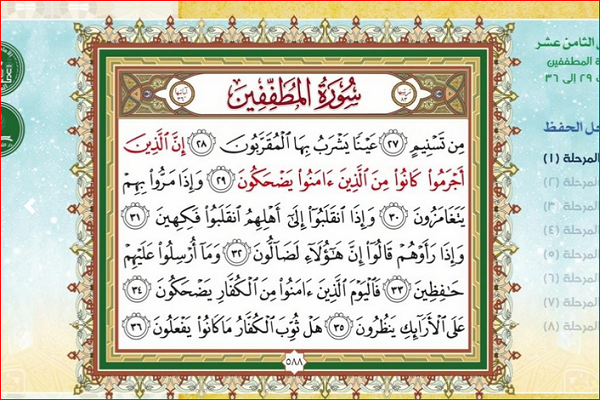 سُورَةُ المُطَفِّفِينَ
مِن تَسْنِيمٍ ٢٧ عَيْنًا يَشْرَبُ بِهَا ٱلْمُقَرَّبُونَ ٢٨ إِنَّ ٱلَّذِينَ
أَجْرَمُوا۟ كَانُوا۟ مِنَ ٱلَّذِينَ ءَامَنُوا۟ يَضْحَكُونَ ٢٩ وَإِذَا مَرُّوا۟ بِهِمْ
يَتَغَامَزُونَ ٣٠ وَإِذَا ٱنقَلَبُوٓا۟ إِلَىٰٓ أَهْلِهِمُ ٱنقَلَبُوا۟ فَكِهِينَ ٣١
وَإِذَا رَأَوْهُمْ قَالُوٓا۟ إِنَّ هَـٰٓؤُلَآءِ لَضَآلُّونَ ٣٢ وَمَآ أُرْسِلُوا۟ عَلَيْهِمْ
حَـٰفِظِينَ ٣٣ فَٱلْيَوْمَ ٱلَّذِينَ ءَامَنُوا۟ مِنَ ٱلْكُفَّارِ يَضْحَكُونَ ٣٤
عَلَى ٱلْأَرَآئِكِ يَنظُرُونَ ٣٥ هَلْ ثُوِّبَ ٱلْكُفَّارُ مَا كَانُوا۟ يَفْعَلُونَ ٣٦
٥٨٨
الثامن عشر
ة المطففين
٢٩ إلى ٣٦
حل الحفظ
المرحلة (١)
المرحلة (٢)
المرحلة (٣)
المرحلة (٤)
المرحلة (٥)
المرحلة (٦)
المرحلة (٧)
المرحلة (٨)